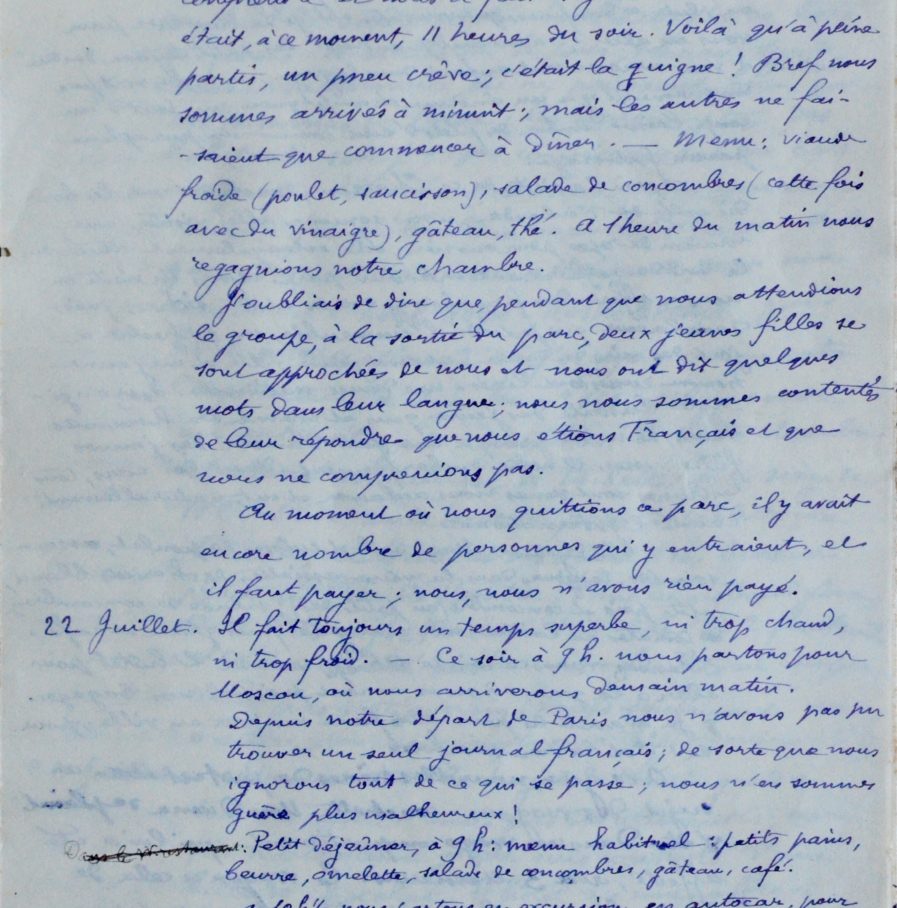 était, à ce moment, 11 heures du soir. Voilà qu'à peine
partis, un pneu crève; c'était la guigne! Bref nous
sommes arrivés à minuit; mais les autres ne fai-
-saient que commencer à dîner. — Menu: viande
froide (poulet, saucisson), salade de concombres (cette fois
avec du vinaigre), gâteau, thé. A 1 heure du matin nous
regagnions notre chambre.
J'oubliais de dire que, pendant que nous attendions
le groupe, à la sortie du parc, deux jeunes filles se
sont approchées de nous et nous ont dit quelques
mots dans leur langue; nous nous sommes contentés
de leur répondre que nous étions Français et que
nous ne comprenions pas.
Au moment où nous quittions ce parc, il y avait
encore nombre de personnes qui y entraient, et
il faut payer; nous, nous n'avons rien payé.
22 Juillet. Il fait toujours un temps superbe, ni trop chaud,
ni trop froid. — Ce soir à 9 h. nous partons pour
Moscou, où nous arriverons demain matin.
Depuis notre départ de Paris nous n'avons pas pu
trouver un seul journal français; de sorte que nous
ignorons tout de ce qui se passe; nous n'en sommes
guère plus malheureux!
Petit déjeûner, à 9 h: menu habituel: petits pains,
beurre, omelette, salade de concombres, gâteau, café.
nous partons en excursion, en autocar, pour